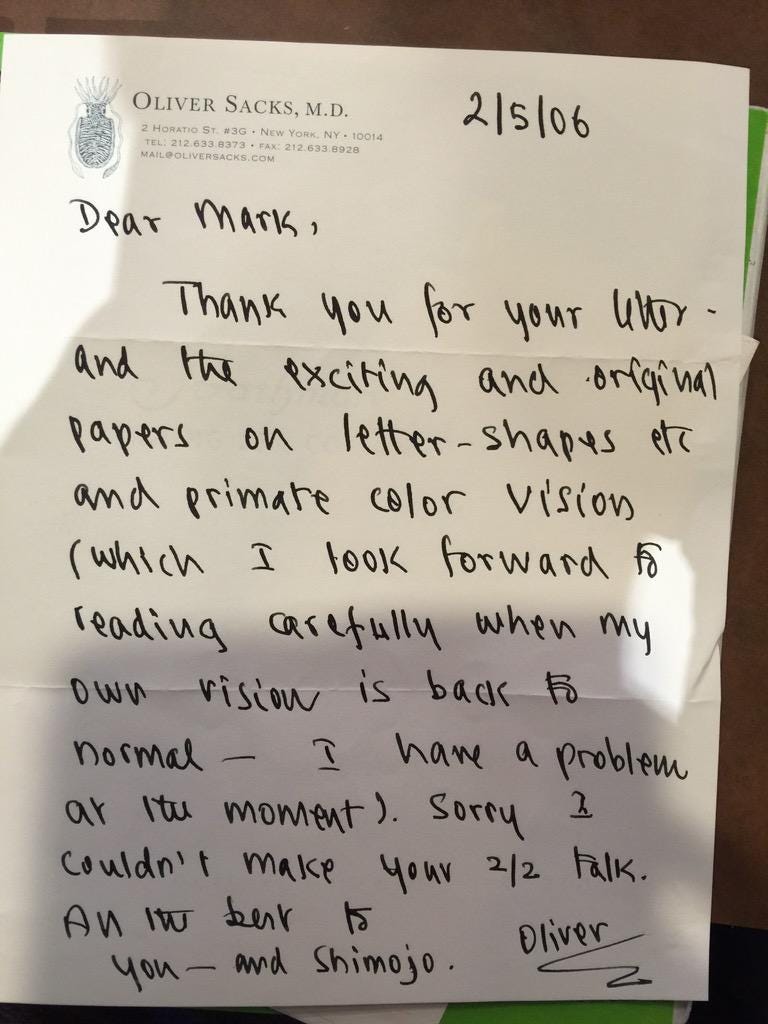 OLIVER SACKS, M.D.
2 HORATIO ST. #3G • NEW YORK, NY • 10014
TEL: 212.633.8373 • FAX: 212.633.8928
MAIL@OLIVERSACKS.COM
2/5/06
Dear Mark,
Thank you for your letter -
and the exciting and original
papers on letter-shapes etc
and primate color vision
(which I look forward to
reading carefully when my
own vision is back to
normal — I have a problem
at the moment). Sorry I
couldn't make your 2/2 talk.
All the best to
you — and Shimojo.
Oliver